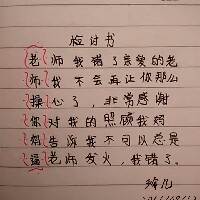 检讨书
老师我错了亲爱的老
师我不会再让你那么
操心了，非常感谢
你对我的照顾我妈
妈告诉我不可以总是
逼老师发火，我错了。